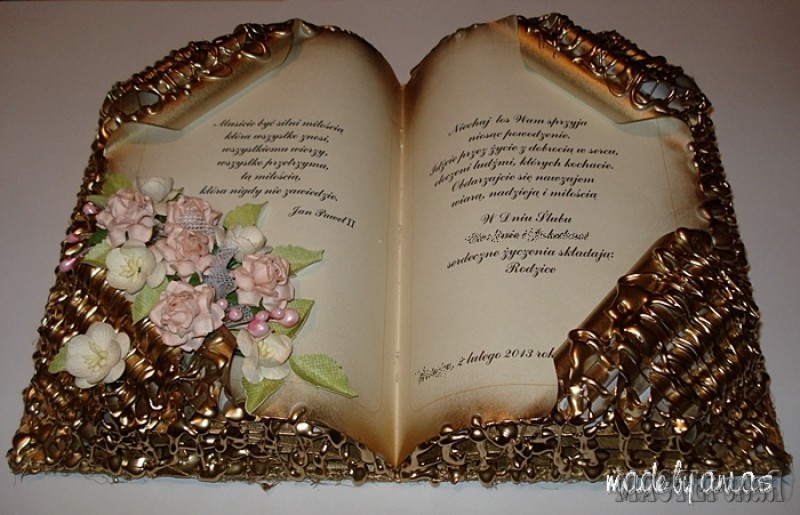 Musicie być silni miłością
która wszystko znosi,
wszystkiemu wierzy,
wszystko przetrzyma,
tą miłością,
która nigdy nie zawiedzie.
Jan Paweł II
Niechaj los Wam sprzyja
niosąc powodzenie.
Idźcie przez życie z dobrocią w sercu,
otoczeni ludźmi, których kochacie.
Obdarzajcie się nawzajem
wiarą, nadzieją i miłością
W Dniu Ślubu
serdeczne życzenia składają:
Rodzice
2 lutego 2013 rok
made by anas